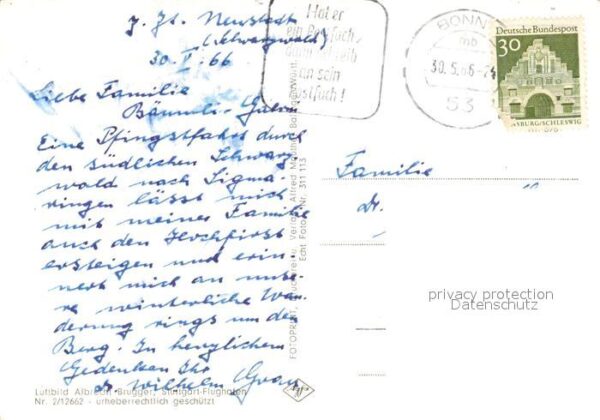 z. Zt. Neustadt
(Schwarzwald)
30. V. 66
Liebe Familie
Bäumli-
Eine Pfingstfahrt durch
den südlichen Schwarz
wald nach Sigma-
ringen lässt mich
mit meiner Familie
auch den Hochfirst
ersteigen und erin
nert mich an unse-
re winterliche Wan
derung rings um den
Berg. In herzlichem
Gedenken Ihr
Dr. Wilhelm
Luftbild Albrecht Brugger, Stuttgart-Flughafen
Nr. 2/12662 - urheberrechtlich geschützt
Echt Foto Nr. 311 113
Hat er
ein Postfach,
dann schreib
an sein
Postfach!
BONN
mb
30.5.66-24
53
Deutsche Bundespost
30
FLENSBURG/SCHLESWIG
Familie
Dr.
privacy protection
Datenschutz